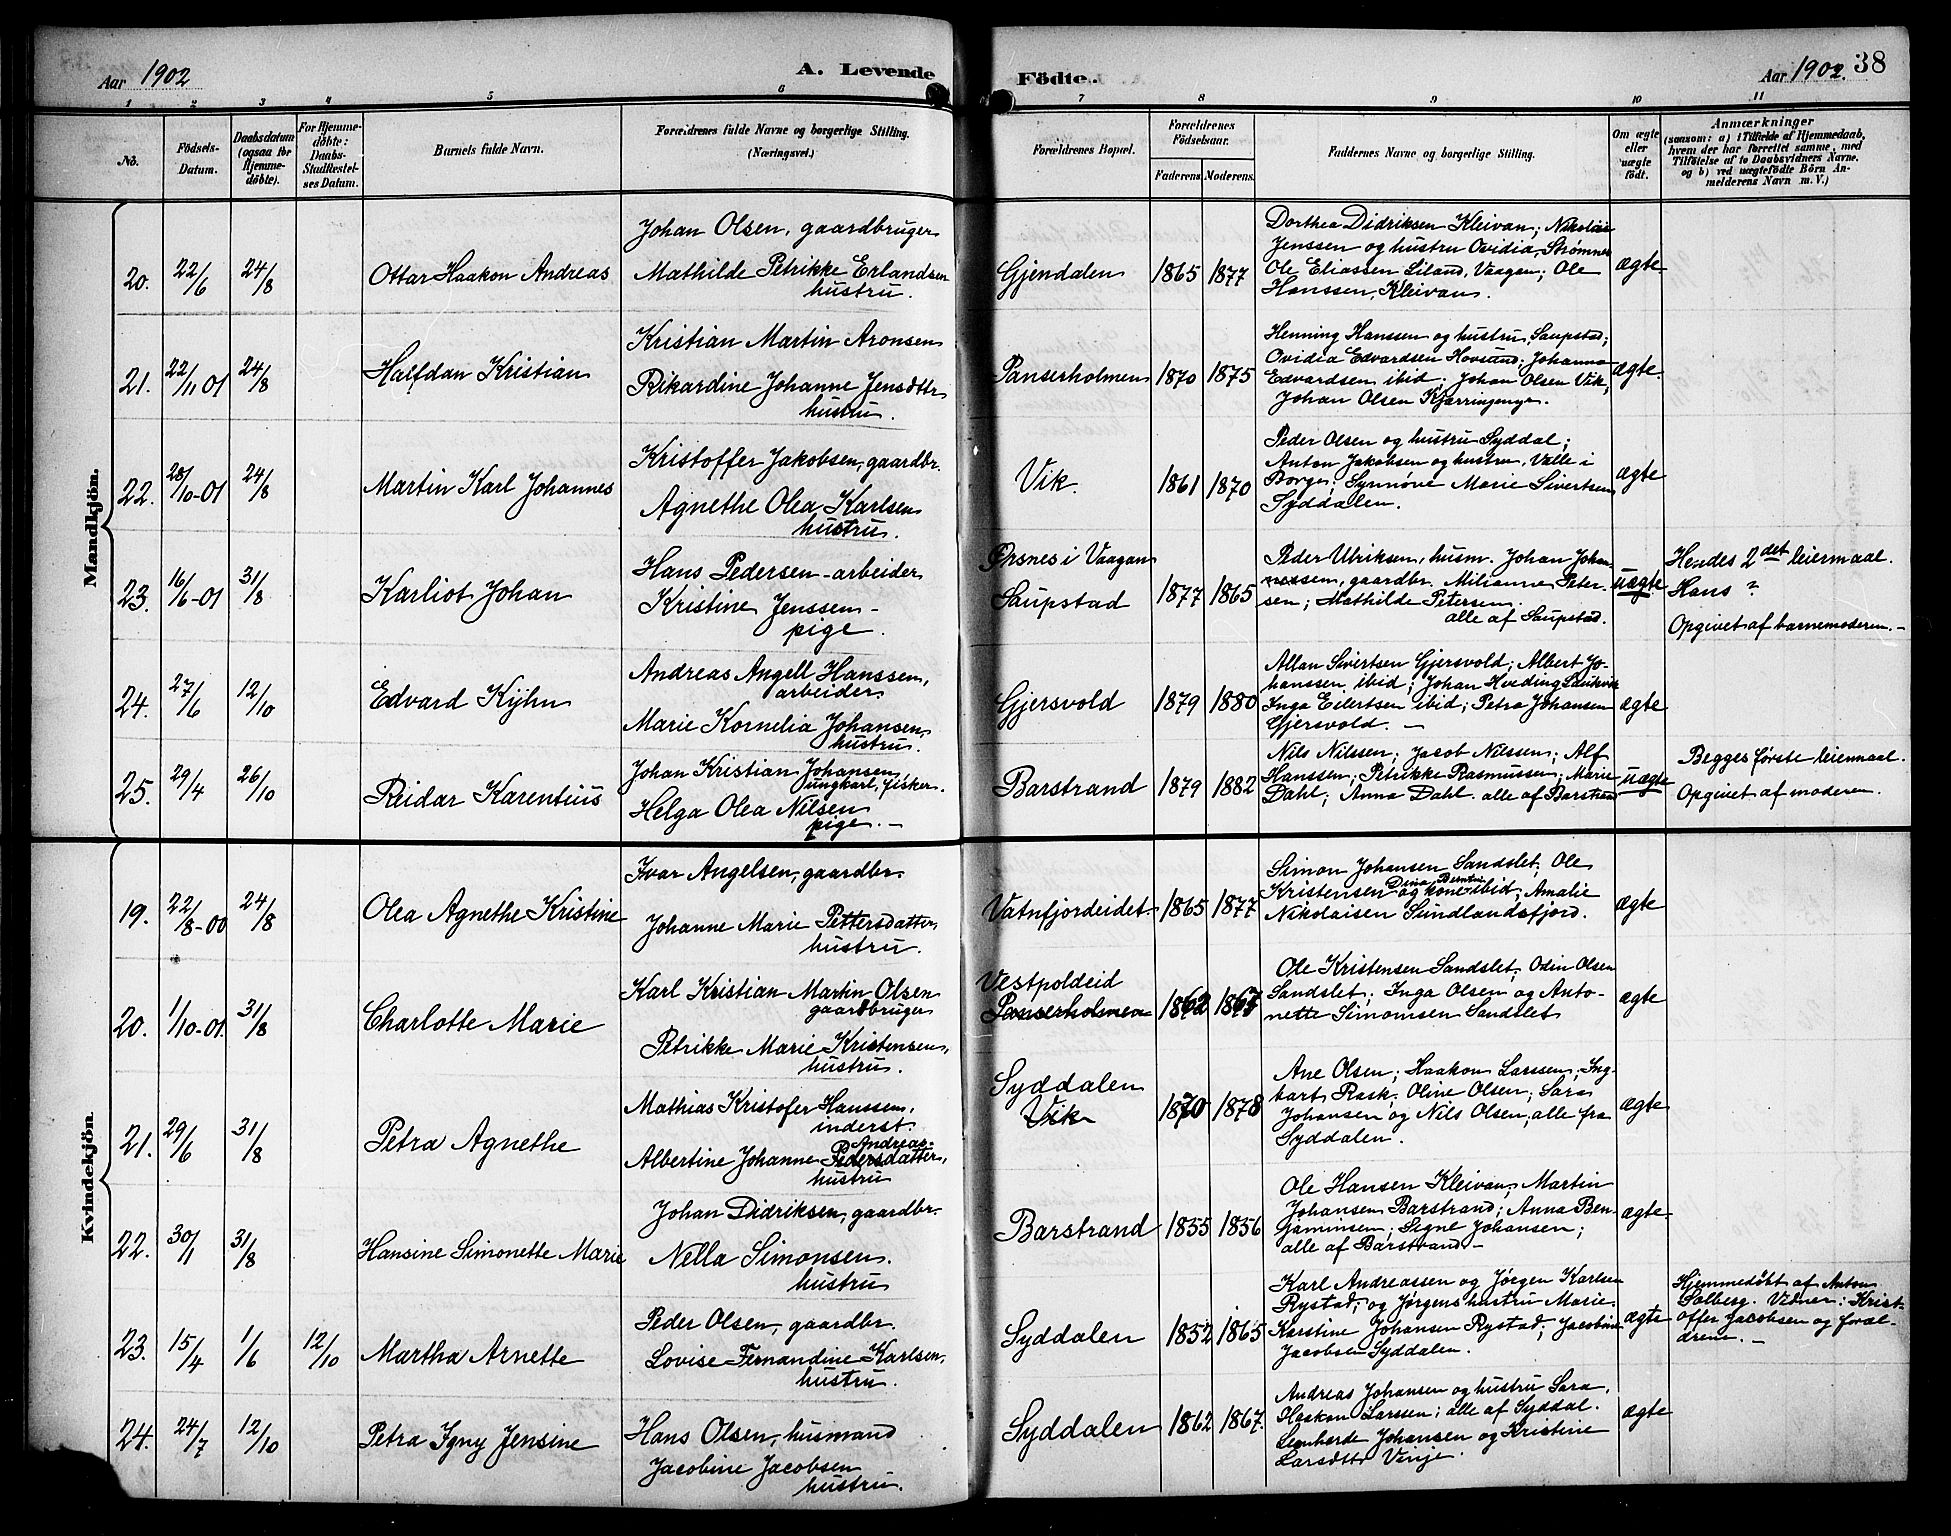 Aar 1902
A. Levende
Födte.
Aar 1902.
38
1 2 3 4 5 6 7 8 9 10 11
No.
Födsels-
Datum.
Daabsdatum
(ogsaa for
Hjemme-
döbte).
For Hjemme-
döbte:
Daabs-
Stadfæstel-
ses Datum.
Barnets fulde Navn.
Forældrenes fulde Navne og borgerlige Stilling.
(Næringsvei.)
Forældrenes Bopæl.
Forældrenes
Födselsaar.
Faderens. Moderens.
Faddernes Navne og borgerlige Stilling.
Om ægte
eller
uægte
födt.
Anmærkninger
(saasom: a) i Tilfælde af Hjemmedaab,
hvem der har forrettet samme, med
Tilföielse af to Daabsvidners Navne,
og b) ved uægtefödte Börn An-
melderens Navn m. V.)
Mandkjön.
20. 22/6 24/8 Ottar Haakon Andreas
Johan Olsen, gaardbruger
Mathilde Petrikke Erlandsen
hustru.
Gjendalen 1865 1877
Dorthea Didriksen Kleivan; Nikolai
Jenssen og hustru Ovidia, Strømnes
Ole Eliassen Liland, Vaagen; Ole
Hanssen, Kleivan.
ægte
21. 22/11 01 24/8 Halfdan Kristian
Kristian Martin Aronsen
Rikardine Johanne Jensdtr
hustru.
Panserholmen 1870 1875
Henning Hanssen og hustru Saupstad;
Ovidia Edvardsen Hovsund; Johanna
Edvardsen ibid; Johan Olsen Vik;
Johan Olsen Kjærringenge.
ægte.
22. 28/10-01 24/8 Martin Karl Johannes
Kristoffer Jakobsen, gaardbr.
Agnethe Olea Karlsen
hustru.
Vik. 1861 1870
Peder Olsen og hustru Syddal;
Anton Jakobsen og hustru, Valle i
Borge; Synnøve Marie Sivertsen
Syddalen.
ægte
23. 16/6-01 31/8 Karliot Johan
Hans Pedersen - arbeider
Kristine Jenssen -
pige.
Ørsnes i Vaagan
Saupstad 1877 1865
Peder Ulriksen, husm. Johan Johan-
nessen, gaardbr. Milianna Peter-
sen; Mathilde Petersen.
alle af Saupstad.
uægte
Hendes 2det leiermaal.
Hans ?
Opgivet af barnemoderen. -
24. 27/6 12/10 Edvard Kyhn
Andreas Angell Hanssen,
arbeider
Marie Kornelia Johansen,
hustru.
Gjersvold 1879 1880
Allan Sivertsen Gjersvold; Albert Jo-
hanssen ibid; Johan Hveding Laukvik
Inga Eilertsen ibid; Petra Johansen
Gjersvold. -
ægte
25. 29/4 26/10 Reidar Karentius
Johan Kristian Johansen
ungkarl, fisker.
Helga Olea Nilsen
pige. -
Barstrand 1879 1882
Nils Nilssen; Jacob Nilssen; Alf
Hanssen; Petrikke Rasmussen; Marie
Dahl; Anna Dahl. alle af Barstrand
uægte
Begges første leiermaal.
Opgivet af moderen.
Kvindekjön.
19. 22/8-00 24/8 Olea Agnethe Kristine
Ivar Angelsen, gaardbr.
Johanne Marie Pettersdatter,
hustru.
Vatnfjordeidet. 1865 1877
Simon Johansen Sandslet; Ole
Kristensen og kone Dina Berntine ibid; Amalie
Nikolaisen Sundlandsfjord.
ægte
20. 1/10-01 31/8 Charlotte Marie
Karl Kristian Martin Olsen
gaardbruger
Petrikke Marie Kristensen,
hustru.
Vestpoldeid
Panserholmen 1862 1867
Ole Kristensen Sandslet; Odin Olsen
Sandslet; Inga Olsen og Anto-
nette Simonsen Sandslet
ægte
21. 29/6 31/8 Petra Agnethe
Mathias Kristofer Hanssen,
inderst.
Andreas-
Albertine Johanne Pedersdatter,
hustru
Syddalen
Vik 1870 1878
Ane Olsen; Haakon Larssen; Ing-
bart Rask; Oline Olsen; Sara
Johansen og Nils Olsen, alle fra
Syddalen.
ægte
22. 30/1 31/8 Hansine Simonette Marie
Johan Didriksen, gaardbr.
Nella Simonsen.
hustru
Barstrand 1855 1856
Ole Hansen Kleivan; Martin
Johansen Barstrand; Anna Ben-
jaminsen; Signe Johansen;
alle af Barstrand -
ægte
23. 15/4 1/6 12/10 Martha Arnette
Peder Olsen, gaardbr.
Lovise Fernandine Karlsen,
hustru.
Syddalen 1852 1865
Karl Andreassen og Jørgen Karlsen
Rystad; og Jørgens hustru Marie.
Karstine Johansen Rystad; Jacobine
Jacobsen Syddalen.
ægte
Hjemmedøbt af Anton
Solberg. Vidner: Krist-
offer Jacobsen og foræl-
drene. -
24. 24/7 12/10 Petra Igny Jensine
Hans Olsen, husmand
Jacobine Jacobsen
hustru.
Syddalen 1862 1867.
Andreas Johansen og hustru Sara,
Haakon Larssen; alle af Syddal.
Johansen og Kristine
Larsdtr
ægte